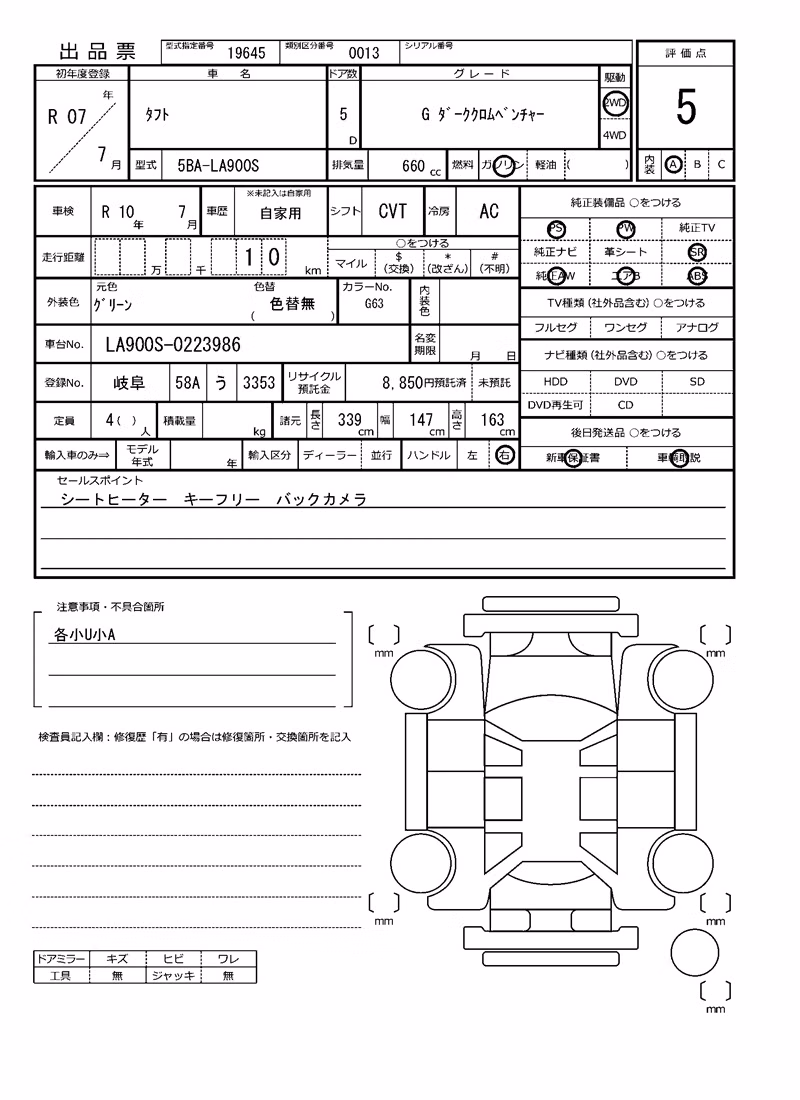 出品票 型式指定番号 19645 類別区分番号 0013 シリアル番号
初年度登録 車名 ドア数 グレード 駆動 評価点
R 07 年 7 月 タフト 5 D G ダーククロムベンチャー 2WD 4WD 5
型式 5BA-LA900S 排気量 660 cc 燃料 ガソリン 軽油 ( ) 内装 A B C
車検 R 10 年 7 月 車歴 ※未記入は自家用 自家用 シフト CVT 冷房 AC
走行距離 万 千 1 0 km ○をつける
マイル $(交換) *(改ざん) #(不明)
外装色 元色 グリーン 色替 ( 色替無 ) カラーNo. G63 内装色
車台No. LA900S-0223986 名変期限 月 日
登録No. 岐阜 58A う 3353 リサイクル預託金 8,850円預託済 未預託
定員 4 ( ) 人 積載量 kg 諸元 長さ 339 cm 幅 147 cm 高さ 163 cm
輸入車のみ⇒ モデル年式 年 輸入区分 ディーラー 並行 ハンドル 左 右
純正装備品 ○をつける
PS PW 純正TV
純正ナビ 革シート SR
純正AW エアB ABS
TV種類(社外品含む) ○をつける
フルセグ ワンセグ アナログ
ナビ種類(社外品含む) ○をつける
HDD DVD SD
DVD再生可 CD
後日発送品 ○をつける
新車保証書 車輌取説
セールスポイント
シートヒーター キーフリー バックカメラ
注意事項・不具合箇所
各小U小A
検査員記入欄：修復歴「有」の場合は修復箇所・交換箇所を記入
ドアミラー キズ ヒビ ワレ
工具 無 ジャッキ 無
mm mm
mm mm
mm